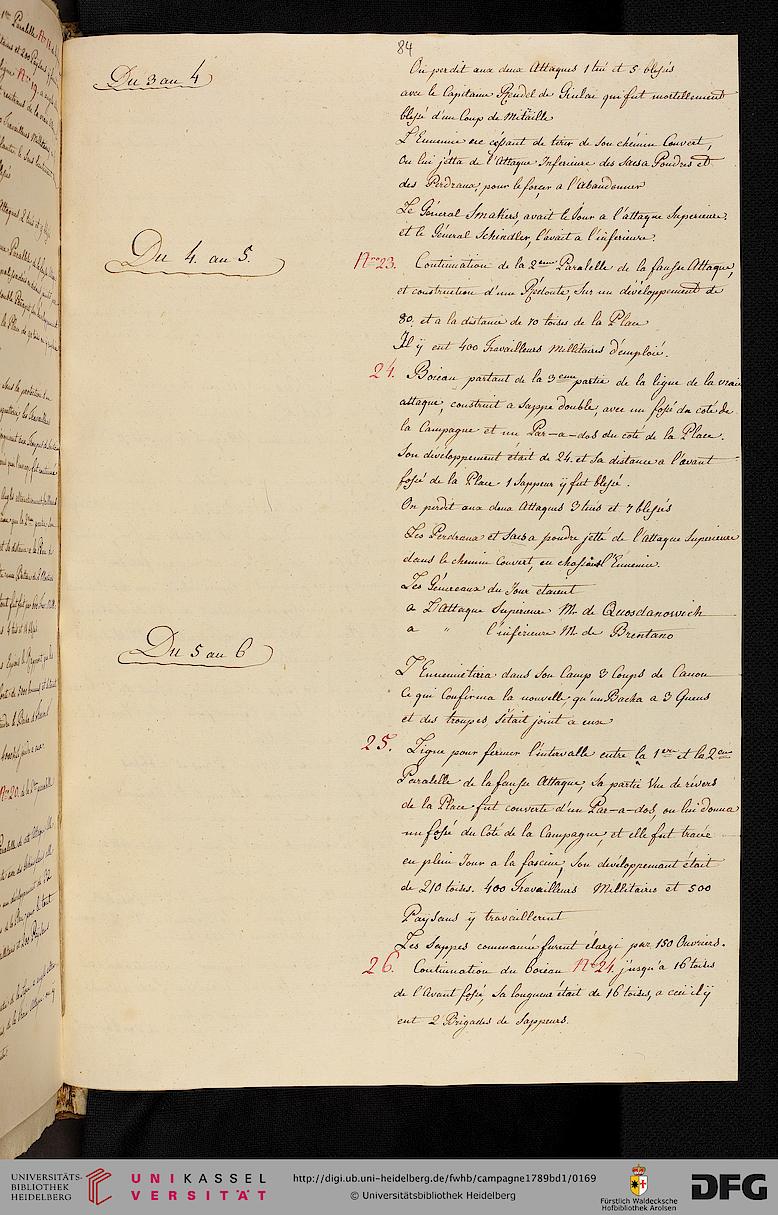 84
Du 3 au 4
On perdit aux deux Attaques 1 tué et 5 blessés
avec le Capitaine Rendel de Giulai qui fut mortellement
blessé d'un Coup de Mitaille
L'Ennemie ne cessant de tirer de son chémin Couvert,
On lui jétta de l'Attaque Inferieure des Sacs a Poudres et
des Perdraux, pour le forcer a l'abandonner
Le Géneral Smakers, avait le Jour a l'attaque Superieure,
et le Géneral Schindler, l'avait a l'inferieure.
Du 4. au 5.
Nro 23. Continuation de la 2eme Paralelle de la fausse Attaque,
et construction d'une Rédoute, Sur un dévéloppement de
80. et a la distance de 70 toises de la Place
Il ÿ eut 400 Travailleurs Millitaires d'emploié.
24. Boieau partant de la 3eme partie de la ligne de la vraie
attaque, construit a Sappe double, avec un fossé du coté de
la Campagne et un Par-a-dos du coté de la Place.
Son dévéloppement était de 24. et Sa distance a l'avant
fossé de la Place. 1 Sappeur ÿ fut blessé.
On perdit aux deux Attaques 3 tués et 7 blessés
Les Perdraux et Sacs a poudre jetté de l'Attaque Superieure
dans le chemin Couvert, en chassient l'Ennemie.
Les Géneraux du Jour etaient
a L'Attaque Superieure Mr. de Quosdanowich
a " l'inférieure Mr. de Brentano
Du 5 au 6
L'Ennemie tira dans Son Camp 3 Coups de Canon
Ce qui Confirma la nouvelle qu'un Bacha a 3 Queus
et des troupes s'était joint a eux
25. Ligne pour fermer l'intervalle entre la 1ere et la 2eme
Paralelle de la fausse Attaque, Sa partie Vue de révers
de la Place fut couverte d'un Par-a-dos, on lui donna
un fossé du Coté de la Campagne, et elle fut tracé
en plein Jour a la fascine, Son dévéloppemant était
de 210 toises. 400 Travailleurs Millitaires et 500
Paÿsans ÿ travaillerent
Les Sappes commancé furent élargi par 150 Ouvriers.
26. Continuation du boieau Nro 24. jusqu'a 16 toises
de l'Avant fossé, Sa longueur était de 16 toises, a ceci il ÿ
eut 2 Brigades de Sappeurs.
UNIVERSITÄTS-
BIBLIOTHEK
HEIDELBERG
UNIKASSEL
VERSITÄT
http://digi.ub.uni-heidelberg.de/fwhb/campagne1789bd1/0169
© Universitätsbibliothek Heidelberg
Fürstlich Waldecksche
Hofbibliothek Arolsen
DFG